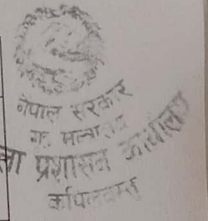 नेपाल सरकार
गृह मन्त्रालय
ला प्रशासन कार्यालय
कपिलवस्तु